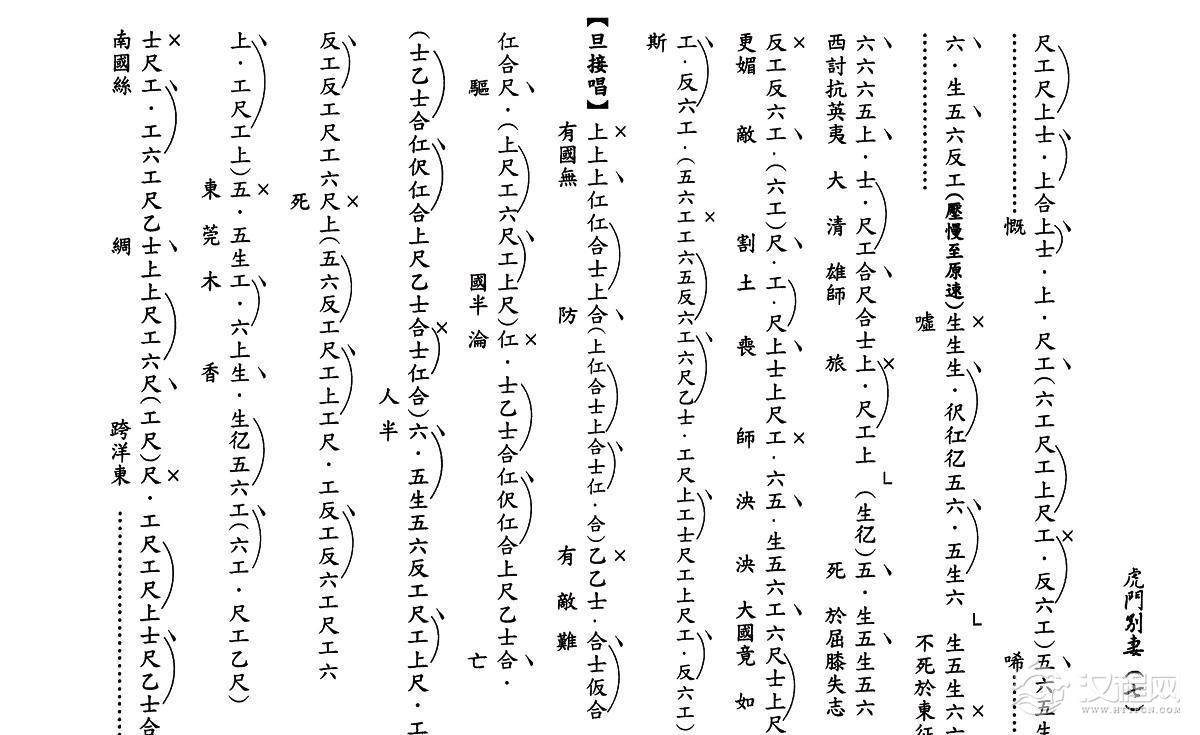 虎門別妻（七）
尺工尺上士．上合上士．上．尺工（六工尺工上尺工．反六工）五六五生
慨 唏
六．生五六反工（壓慢至原速）生生生．彶㣉億五六．五生六 生五生六六
噓 不死於東征
六六六五上．士．尺工合尺合士上．尺工上 （生億）五．生五生五六
西討抗英夷 大清雄師 旅 死於屈膝失志
反工反六工．（六工）尺．工．尺上士上尺工．六五．生五六工六尺士上尺
更媚 敵 割土喪師 泱泱大國竟如
工．反六工．（五六工工六五反六工六尺乙士．工尺上工士尺工上尺工．反六工）
斯
【旦接唱】上上上仜仜合士上合（上仜合士上合士仜．合）乙乙士．合士仮合
有國無 防 有敵難
仜合尺．（上尺工六尺工上尺）仜．士乙士合仜伬仜合上尺乙士合．
驅 國半淪 亡
（士乙士合仜伬仜合上尺乙士合士仜合）六．五生五六反工尺工上尺．工
人半
反工反工尺工六尺上（五六反工尺工上工尺．工反工反六工尺工六
死
上．工尺工上）五．五生工．六上生．生億五六工（六工．尺工乙尺）
東莞木 香
士尺工．工六工尺乙士上上尺工六尺（工尺）尺．工尺工尺上士尺乙士合
南國絲 綢 跨洋東
汉程网
WWW.HTTPCN.COM